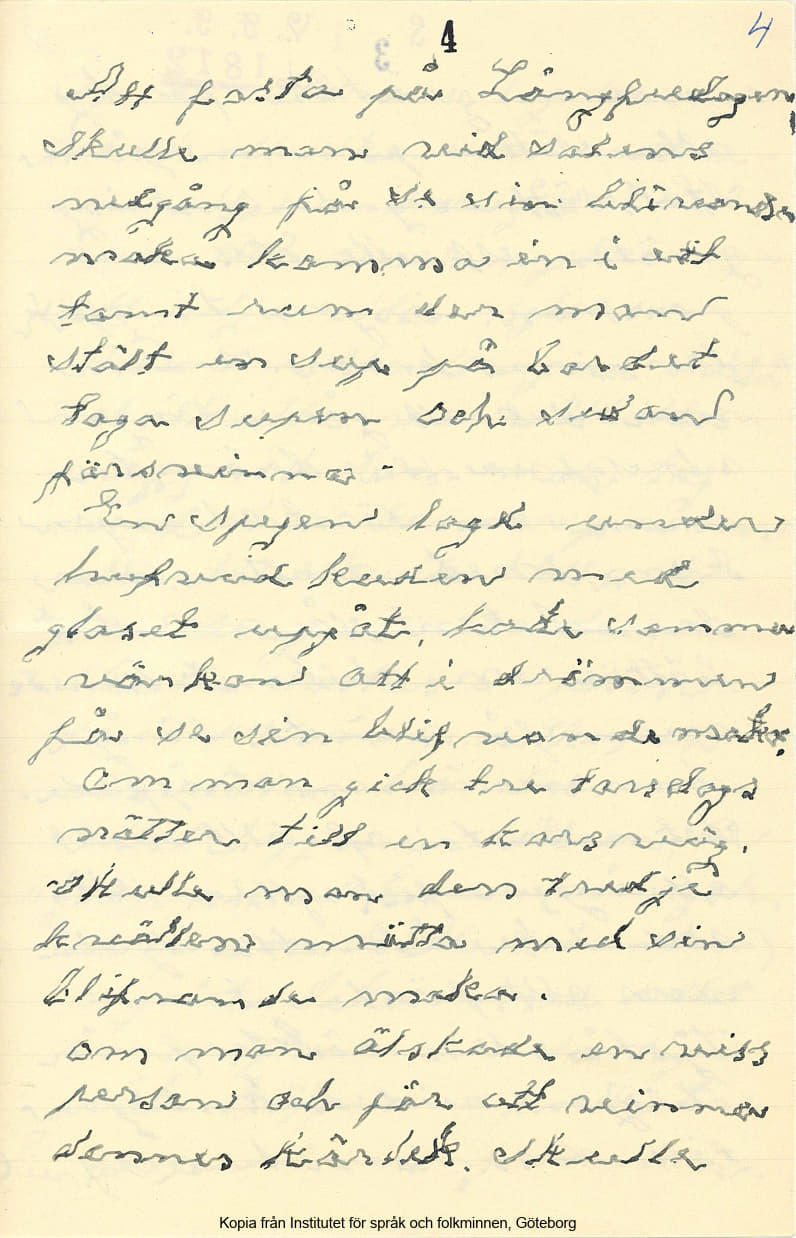 4
4
Att fasta på Långfredagen
skulle man vid solens
nedgång få se sin blivande
maka komma in i ett
tomt rum der man
stält en sup på bordet
taga supen och
försvinna -
En spegen lagd under
hufvud kuden med
glaset uppåt, hade samma
värkan att i drömmen
få se sin blifvande maka.
Om man gick tre torsdags
nätter till en korsväg,
skulle man den tredje
kvällen mötta med sin
blifvande maka.
om man älskade en viss
person och för att vinna
dennes kärlek. skulle
Kopia från Institutet för språk och folkminnen, Göteborg